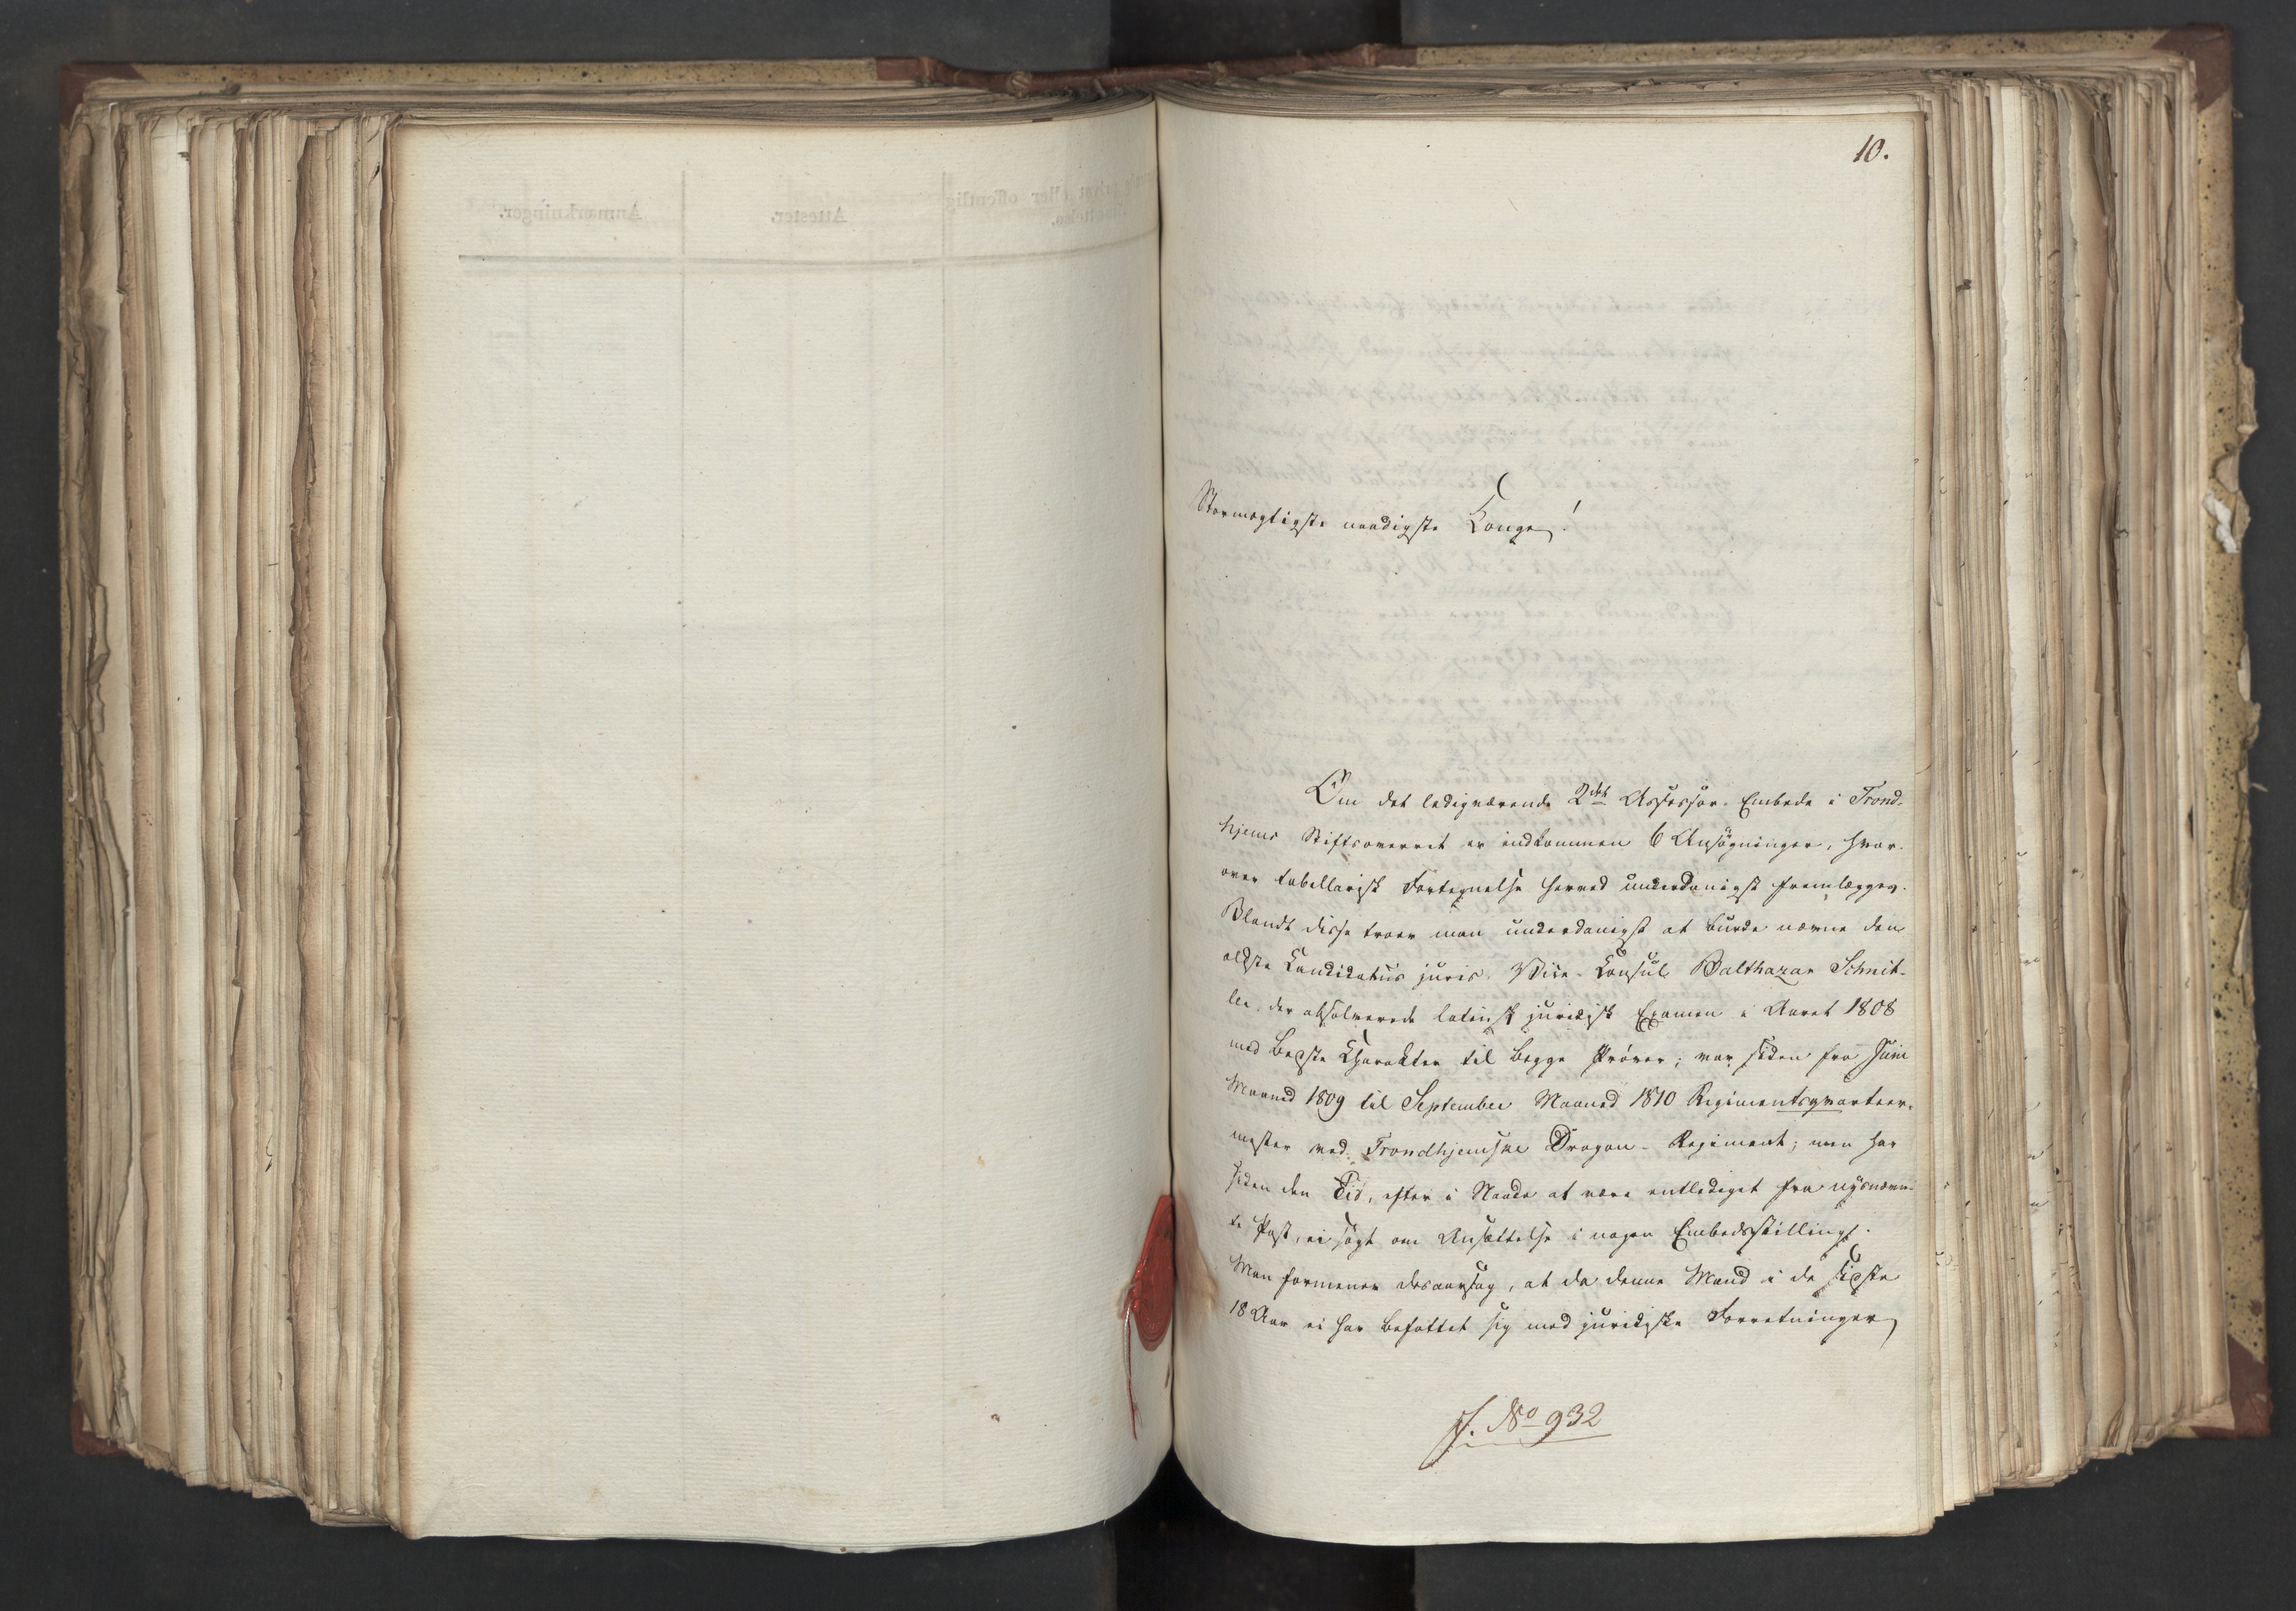 10.
Stormægtigste naadigste Konge!
Om det ledigværende 2det Assessor-Embede i Trond-
hjems Stiftsoverret er indkommen 6 Ansøgninger, hvor-
over tabellarisk Fortegnelse herved underdanigst fremlægges.
Blandt disse troer man underdanigst at burde nævne den
ældste Candidatus juris, Vice-Consul Balthazar Schnit-
ler, der absolverede latinsk juridisk Examen i Aaret 1808
med Bedste Charakter til begge Prøver; var siden fra Juni
Maaned 1809 til September Maaned 1810 Regimentsqvarteer-
mester ved Trondhjemske Dragon-Regiment; men har
siden den Tid, efter i Naade at være entlediget fra nysnævn-
te Post, ei søgt om Ansættelse i nogen Embedsstilling.
Man formener desaarsag, at da denne Mand i de sidste
18 Aar ei har befattet sig med juridiske Forretninger
J. No 932
Anmærkninger.
Attester.
eller offentlig